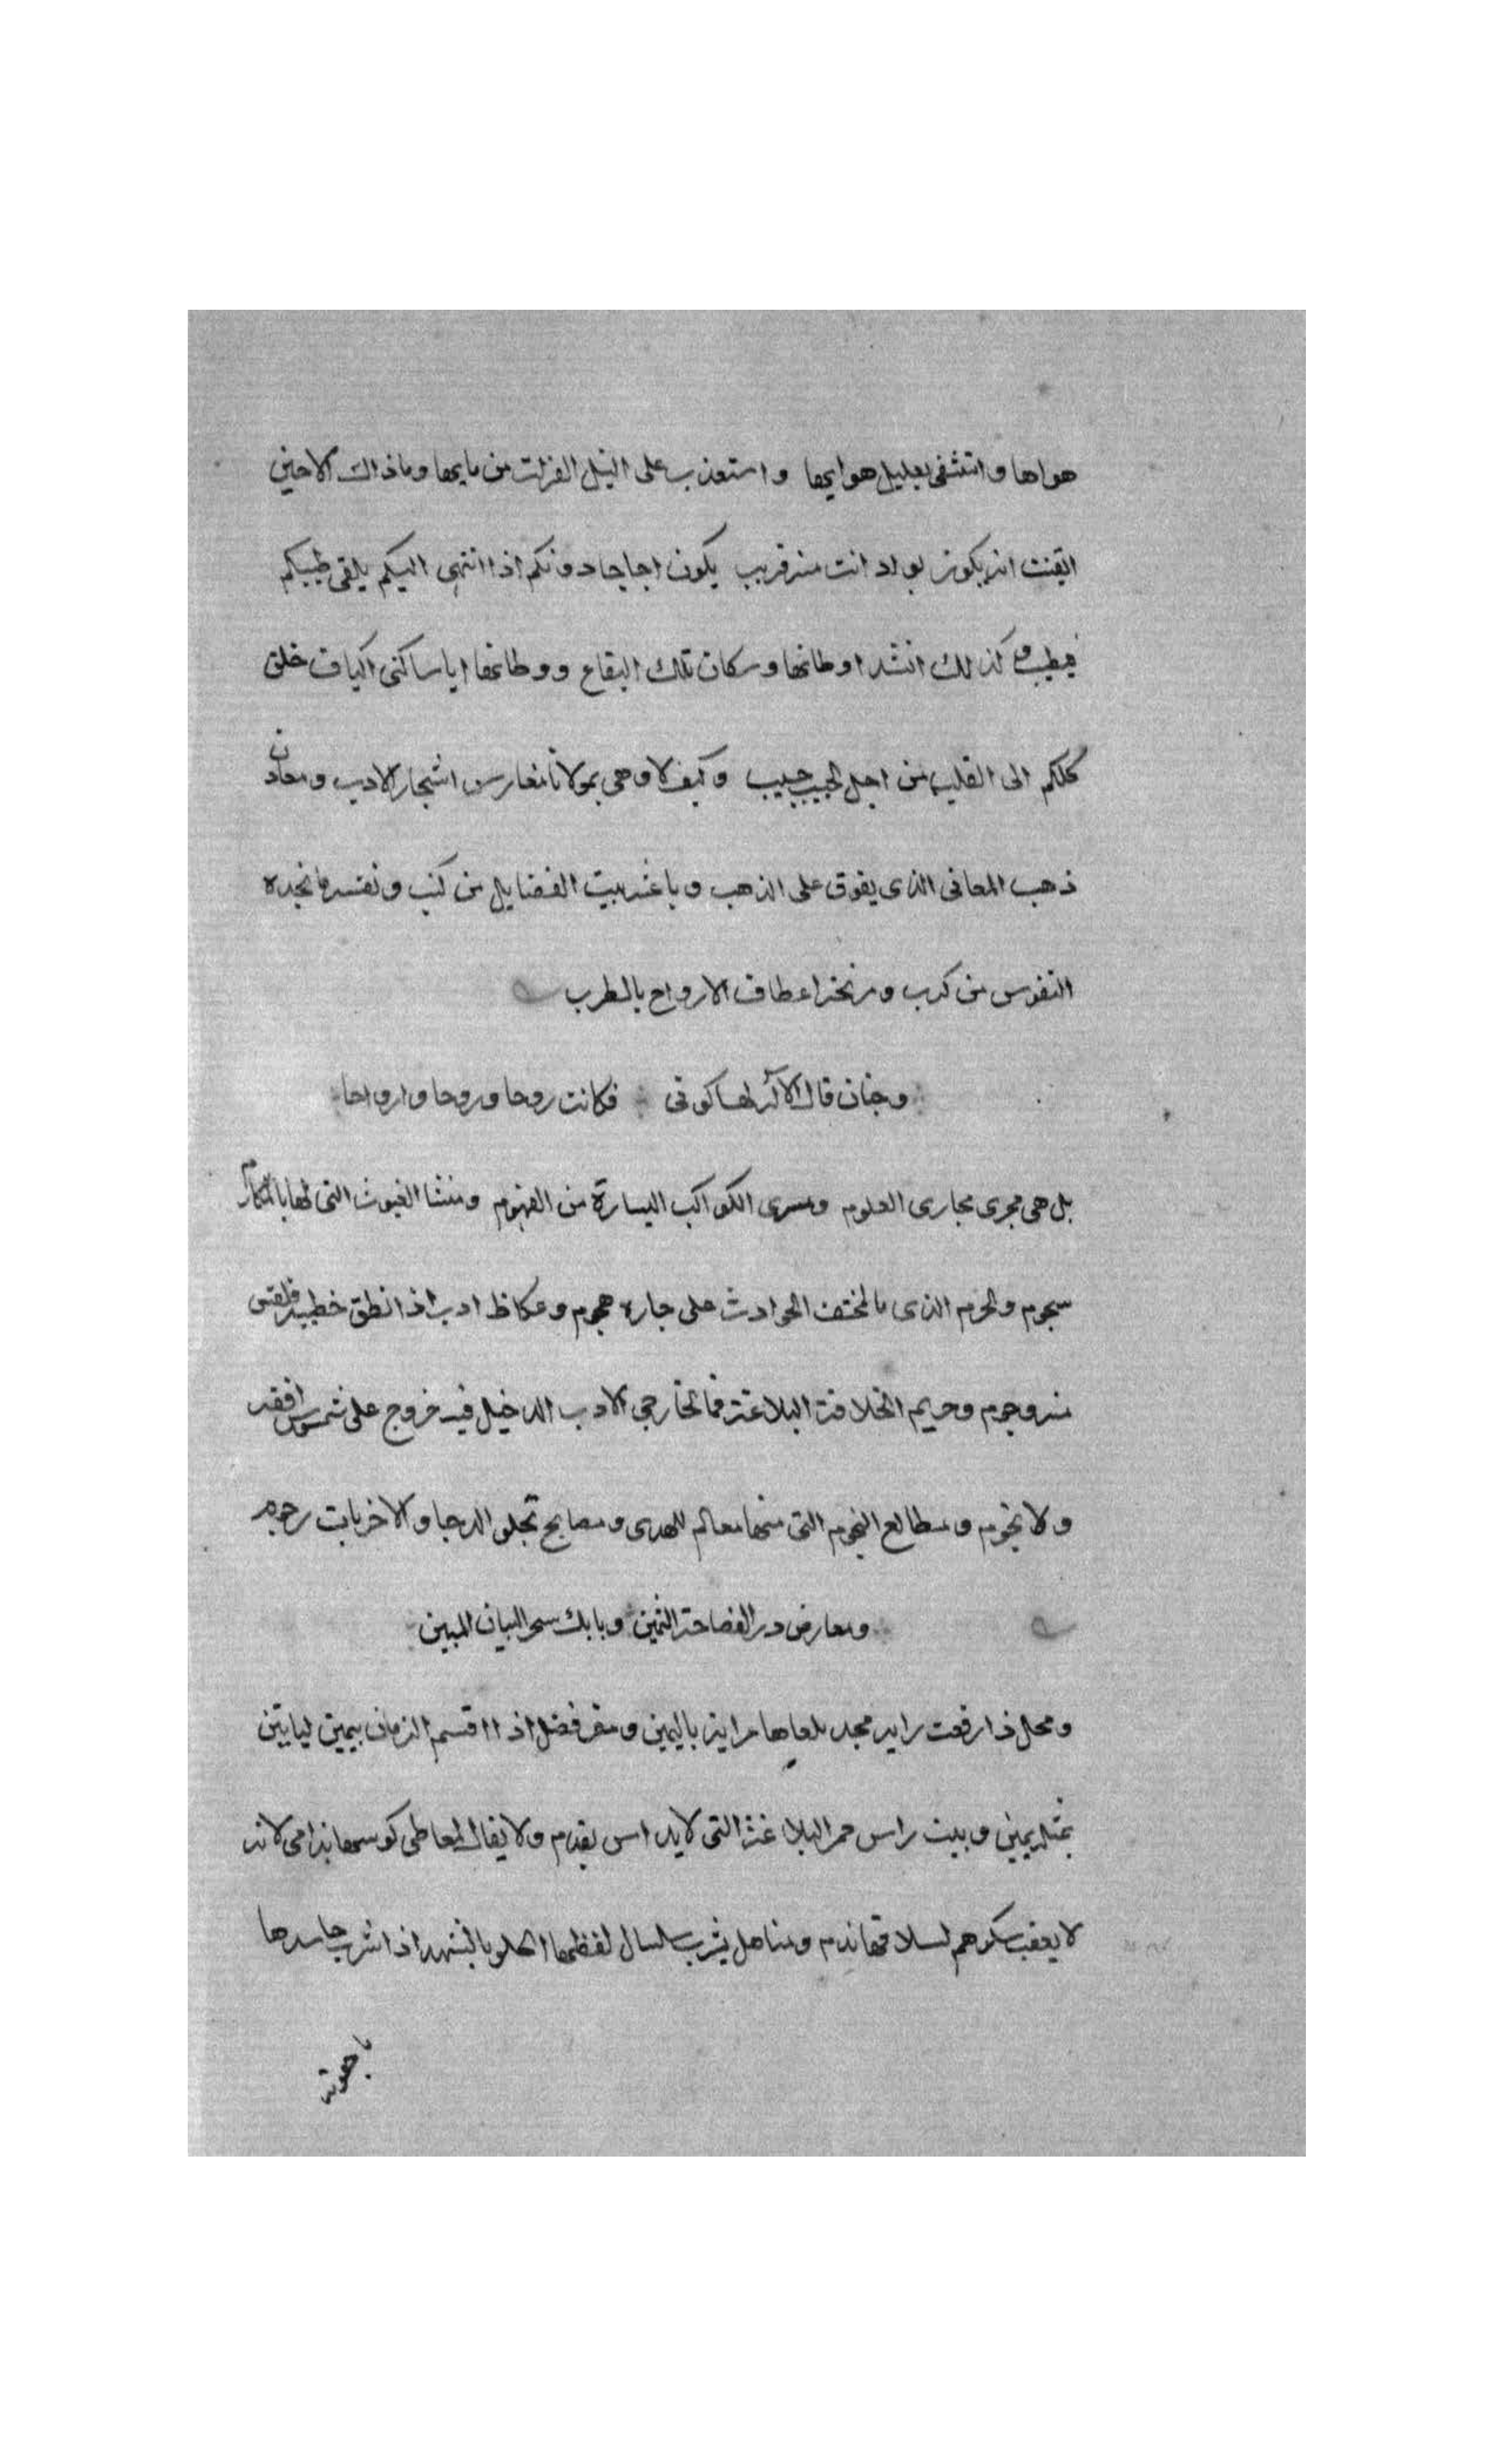 هواها واتشفى بعليل هوايها واستعذب على النيل الفرات من مايها وماذاك الا حين
ايقنت انه يكون بواد انت منه قريب يكون اجاجا دونكم اذا انتهى اليكم يلقى طيبكم
فيطيب وكذلك انشد اوطانها وسكان تلك البقاع ووطانها ايا ساكنى اكياف خلق
كلكم الى القلب من اجل الحبيب حبيب وكيف لا وهى بمولانا مغارس اشجار الادب ومعادن
ذهب المعانى الذى يفوق على الذهب وباغنه بيت الفضايل من كثب ونفسه ما نجده
النفوس من كرب ومرنحه اعطاف الارواح بالطرب
وجنان قال الاله لها كونى فكانت روحا وروحا وارواحا
بل هى مجرى مجارى العلوم ومسرى الكواكب اليسارة من الفهوم ومنشا الغيوث التى لها بالمكارم
سجوم والحرم الذى ما لمختف الحوادث على جاره هجوم وعكاظ ادب اذا نطق خطيبه فلقس
منه وجوم وحريم الخلافة البلاغة فما لخارجى الادب الدخيل فيه خروج على شموس افقه
ولا نجوم ومطالع النجوم التى منها معالم للهدى ومصابح تجلو الدجا والاخريات رجوم
ومعارض در الفصاحة الثمين وبابك سحر البيان المبين
ومحل اذا رفعت راية مجد تلقاها عرابة باليمين ومقر فضل اذا اقسم الزمان بيمين لياتين
بمثله يمين وبيت راس خمر البلاغة التى لا يداس بقدم ولا يقال لمعاطى كوسها ندامى لانه
لا يعقب سكرهم لسلافتها ندم ومناهل يشرب سلسال لفظها الحلو بالشهد اذا شرب حاسدها